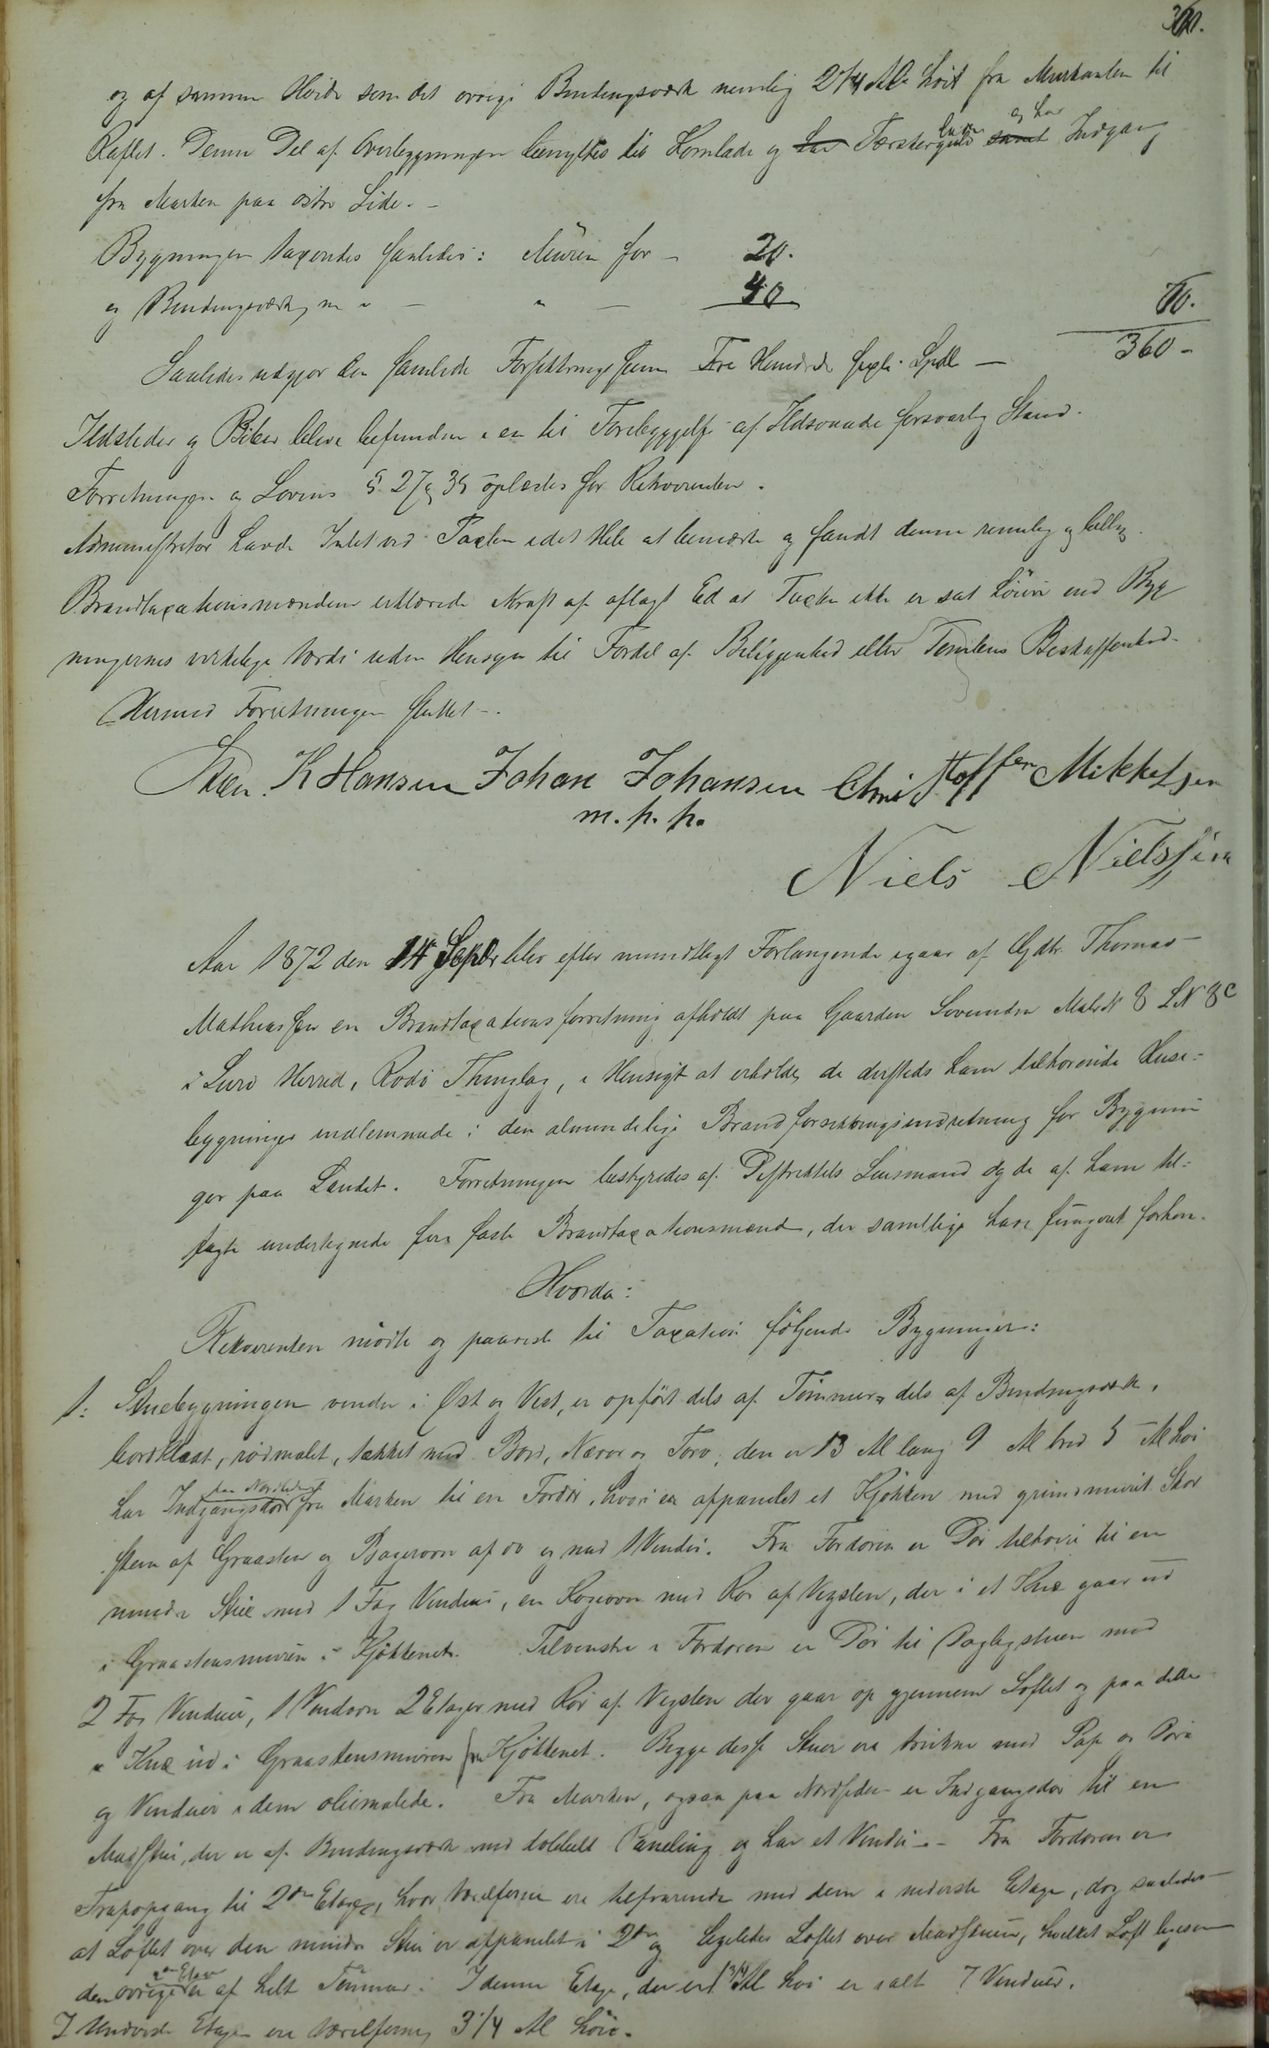 360.
og af samme Høide som det øvrige Bindingsværk nemlig 2 1/4 Al: høit fra Murkanten til
Raftet. Denne Del af Overbygningen benyttes til Kornlade og har Tærskergulv laave samt og har Indgang
fra Marken paa østre Side. -
Bygningen taxeredes saaledes: Muren for - 20.
og Bindingsværk - " - 40. 60.
Saaledes udgjør den samlede Forsikringssum Tre Hundrede sexti Spdl - 360 -
Ildsteder og Piber bleve befundne i en til Forebyggelse af Ildsvaade forsvarlig Stand.
Forretningen og Lovens § 27 og 38 oplæstes for Rekvirenten.
Administrator havde Intet ved Taxten i det Hele at bemærke og fandt denne rimelig og billig.
Brandtaxationsmændene erklærede i Kraft af aflagt Ed at Taxten ikke er sat høiere end Byg
ningernes virkelige Værdi uden Hensyn til Fordel af Beliggenhed eller Tomtens Beskaffenhed.
Hermed Forretningen sluttet -.
Sten. K Hansen Johan Johansen Christoffer Mikkelsen
m. p. p.
Niels Nielssen
Aar 1872 den 14 Septbr blev efter mundtligt Forlangende igaar af Gdbr. Thomas
Mathiassen en Brandtaxationsforretning afholdt paa Gaarden Sovinden Matr N 8 LN 8c
i Lurø Herred, Rødø Thinglag, i Hensigt at erholde de dersteds ham tilhørende Huse-
bygninger indlemmede i den almindelige Brandforsikringsindretning for Bygnin
ger paa Landet. Forretningen bestyredes af Distriktets Lensmand og de af ham til-
sagte undertegnede fire faste Brandtaxationsmænd, der samtlige have fungeret forhen.
Hvorda:
Rekvirenten mødte og paaviste til Taxation følgende Bygninger:
1: Stuebygningen vender i Øst og Vest, er opført dels af Tømmer, dels af Bindingsværk,
bordklædt, rødmalet, tækket med Bord, Næver og Torv; den er 13 Al lang 9 Al bred 5 Al høi
har Indgangsdør paa Nordsiden fra Marken til en Fordør, hvori er afpanelet et Kjøkken med grundmuret Skor
sten af Graasten og Bagerovn af do og med 1 Vindu. Fra Fordøren er Dør tilhøire til en
mindre Stue med 1 Fag Vinduer, en Kogeovn med Rør af Vegsten, der i et Knæ gaar ud
i Graastensmuren i Kjøkkenet. Tilvenstre i Fordøren er Dør til Dagligstuen med
2 Fag Vinduer, 1 Vindovn 2 Etager med Rør af Vegsten der gaar op gjennem Loftet og paa dette
i Knæ ud i Graastensmuren fra Kjøkkenet. Begge disse Stuer ere trukne med Pap og Døre
og Vinduer i dem oliemalede. Fra Marken, ogsaa paa Nordsiden er Indgangsdør til en
Madstue, der er af Bindingsværk med dobbelt Paneling og har et Vindu. - Fra Fordøren er
Trapopgang til 2den Etage, hvor Værelserne ere tilsvarende med dem i nederste Etage, dog saaledes
at Loftet over den mindre Stue er afpanelet i 2de og ligeledes Loftet over Madstuen, hvilket Loft ligesom
den øvrige 2den Etage er af helt Tømmer. I denne Etage, der er 1 3/4 Al høi er ialt 7 Vinduer.
I Underste Etage ere Værelserne 3 1/4 Al høie.